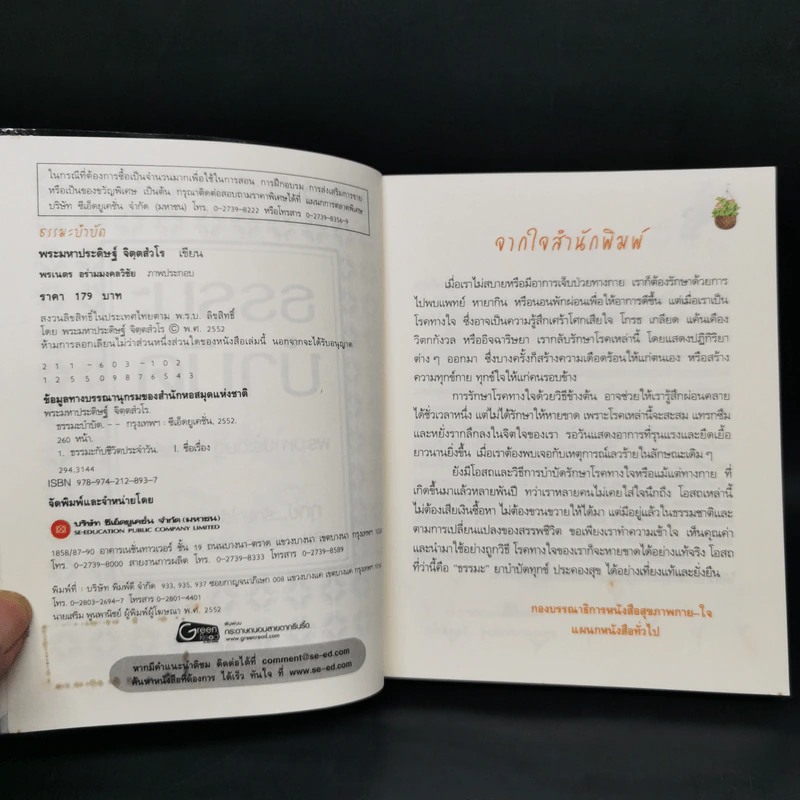 ในกรณีที่ต้องการซื้อเป็นจำนวนมากเพื่อใช้ในการสอน การฝึกอบรม การส่งเสริมการขาย
หรือเป็นของขวัญพิเศษ เป็นต้น กรุณาติดต่อสอบถามราคาพิเศษได้ที่ แผนกการตลาดพิเศษ
บริษัท ซีเอ็ดยูเคชั่น จำกัด (มหาชน) โทร. 0-2739-8222 หรือโทรสาร 0-2739-8356-9
ธรรมะบำบัด
พระมหาประดิษฐ์ จิตฺตสํวโร เขียน
พรเนตร อร่ามมงคลวิชัย ภาพประกอบ
ราคา 179 บาท
สงวนลิขสิทธิ์ในประเทศไทยตาม พ.ร.บ. ลิขสิทธิ์
โดย พระมหาประดิษฐ์ จิตฺตสํวโร © พ.ศ. 2552
ห้ามการลอกเลียนไม่ว่าส่วนหนึ่งส่วนใดของหนังสือเล่มนี้ นอกจากจะได้รับอนุญาต
2 1 1 - 6 0 3 - 1 0 2
1 2 5 5 0 9 8 7 6 5 4 3
ข้อมูลทางบรรณานุกรมของสำนักหอสมุดแห่งชาติ
พระมหาประดิษฐ์ จิตฺตสํวโร.
ธรรมะบำบัด. -- กรุงเทพฯ : ซีเอ็ดยูเคชั่น, 2552.
260 หน้า.
1. ธรรมะกับชีวิตประจำวัน. I. ชื่อเรื่อง
294.3144
ISBN 978-974-212-893-7
จัดพิมพ์และจำหน่ายโดย
บริษัท ซีเอ็ดยูเคชั่น จำกัด (มหาชน)
SE-EDUCATION PUBLIC COMPANY LIMITED
1858/87-90 อาคารเนชั่นทาวเวอร์ ชั้น 19 ถนนบางนา-ตราด แขวงบางนา เขตบางนา กรุงเทพฯ
โทร. 0-2739-8000 สายงานการผลิต โทร. 0-2739-8333 โทรสาร 0-2739-8589
พิมพ์ที่ : บริษัท พิมพ์ดี จำกัด 933, 935, 937 ซอยกาญจนาภิเษก 008 แขวงบางแค เขตบางแค กรุงเทพฯ
โทร. 0-2803-2694-7 โทรสาร 0-2801-4401
นายเสริม พูนพานิชย์ ผู้พิมพ์ผู้โฆษณา พ.ศ. 2552
Green Read
พิมพ์บน
กระดาษถนอมสายตากรีนรี้ด
www.greenread.com
หากมีคำแนะนำติชม ติดต่อได้ที่ comment@se-ed.com
ค้นหาหนังสือที่ต้องการ ได้เร็ว ทันใจ ที่ www.se-ed.com
จากใจสำนักพิมพ์
เมื่อเราไม่สบายหรือมีอาการเจ็บป่วยทางกาย เราก็ต้องรักษาด้วยการ
ไปพบแพทย์ หายากิน หรือนอนพักผ่อนเพื่อให้อาการดีขึ้น แต่เมื่อเราเป็น
โรคทางใจ ซึ่งอาจเป็นความรู้สึกเศร้าโศกเสียใจ โกรธ เกลียด แค้นเคือง
วิตกกังวล หรืออิจฉาริษยา เรากลับรักษาโรคเหล่านี้ โดยแสดงปฏิกิริยา
ต่าง ๆ ออกมา ซึ่งบางครั้งก็สร้างความเดือดร้อนให้แก่ตนเอง หรือสร้าง
ความทุกข์กาย ทุกข์ใจให้แก่คนรอบข้าง
การรักษาโรคทางใจด้วยวิธีข้างต้น อาจช่วยให้เรารู้สึกผ่อนคลาย
ได้ชั่วเวลาหนึ่ง แต่ไม่ได้รักษาให้หายขาด เพราะโรคเหล่านี้จะสะสม แทรกซึม
และหยั่งรากลึกลงในจิตใจของเรา รอวันแสดงอาการที่รุนแรงและยืดเยื้อ
ยาวนานยิ่งขึ้น เมื่อเราต้องพบเจอกับเหตุการณ์เลวร้ายในลักษณะเดิม ๆ
ยังมีโอสถและวิธีการบำบัดรักษาโรคทางใจหรือแม้แต่ทางกาย ที่
เกิดขึ้นมาแล้วหลายพันปี ทว่าเราหลายคนไม่เคยใส่ใจนึกถึง โอสถเหล่านี้
ไม่ต้องเสียเงินซื้อหา ไม่ต้องขวนขวายให้ได้มา แต่มีอยู่แล้วในธรรมชาติและ
ตามการเปลี่ยนแปลงของสรรพชีวิต ขอเพียงเราทำความเข้าใจ เห็นคุณค่า
และนำมาใช้อย่างถูกวิธี โรคทางใจของเราก็จะหายขาดได้อย่างแท้จริง โอสถ
ที่ว่านี้คือ "ธรรมะ" ยาบำบัดทุกข์ ประคองสุข ได้อย่างเที่ยงแท้และยั่งยืน
กองบรรณาธิการหนังสือสุขภาพกาย-ใจ
แผนกหนังสือทั่วไป